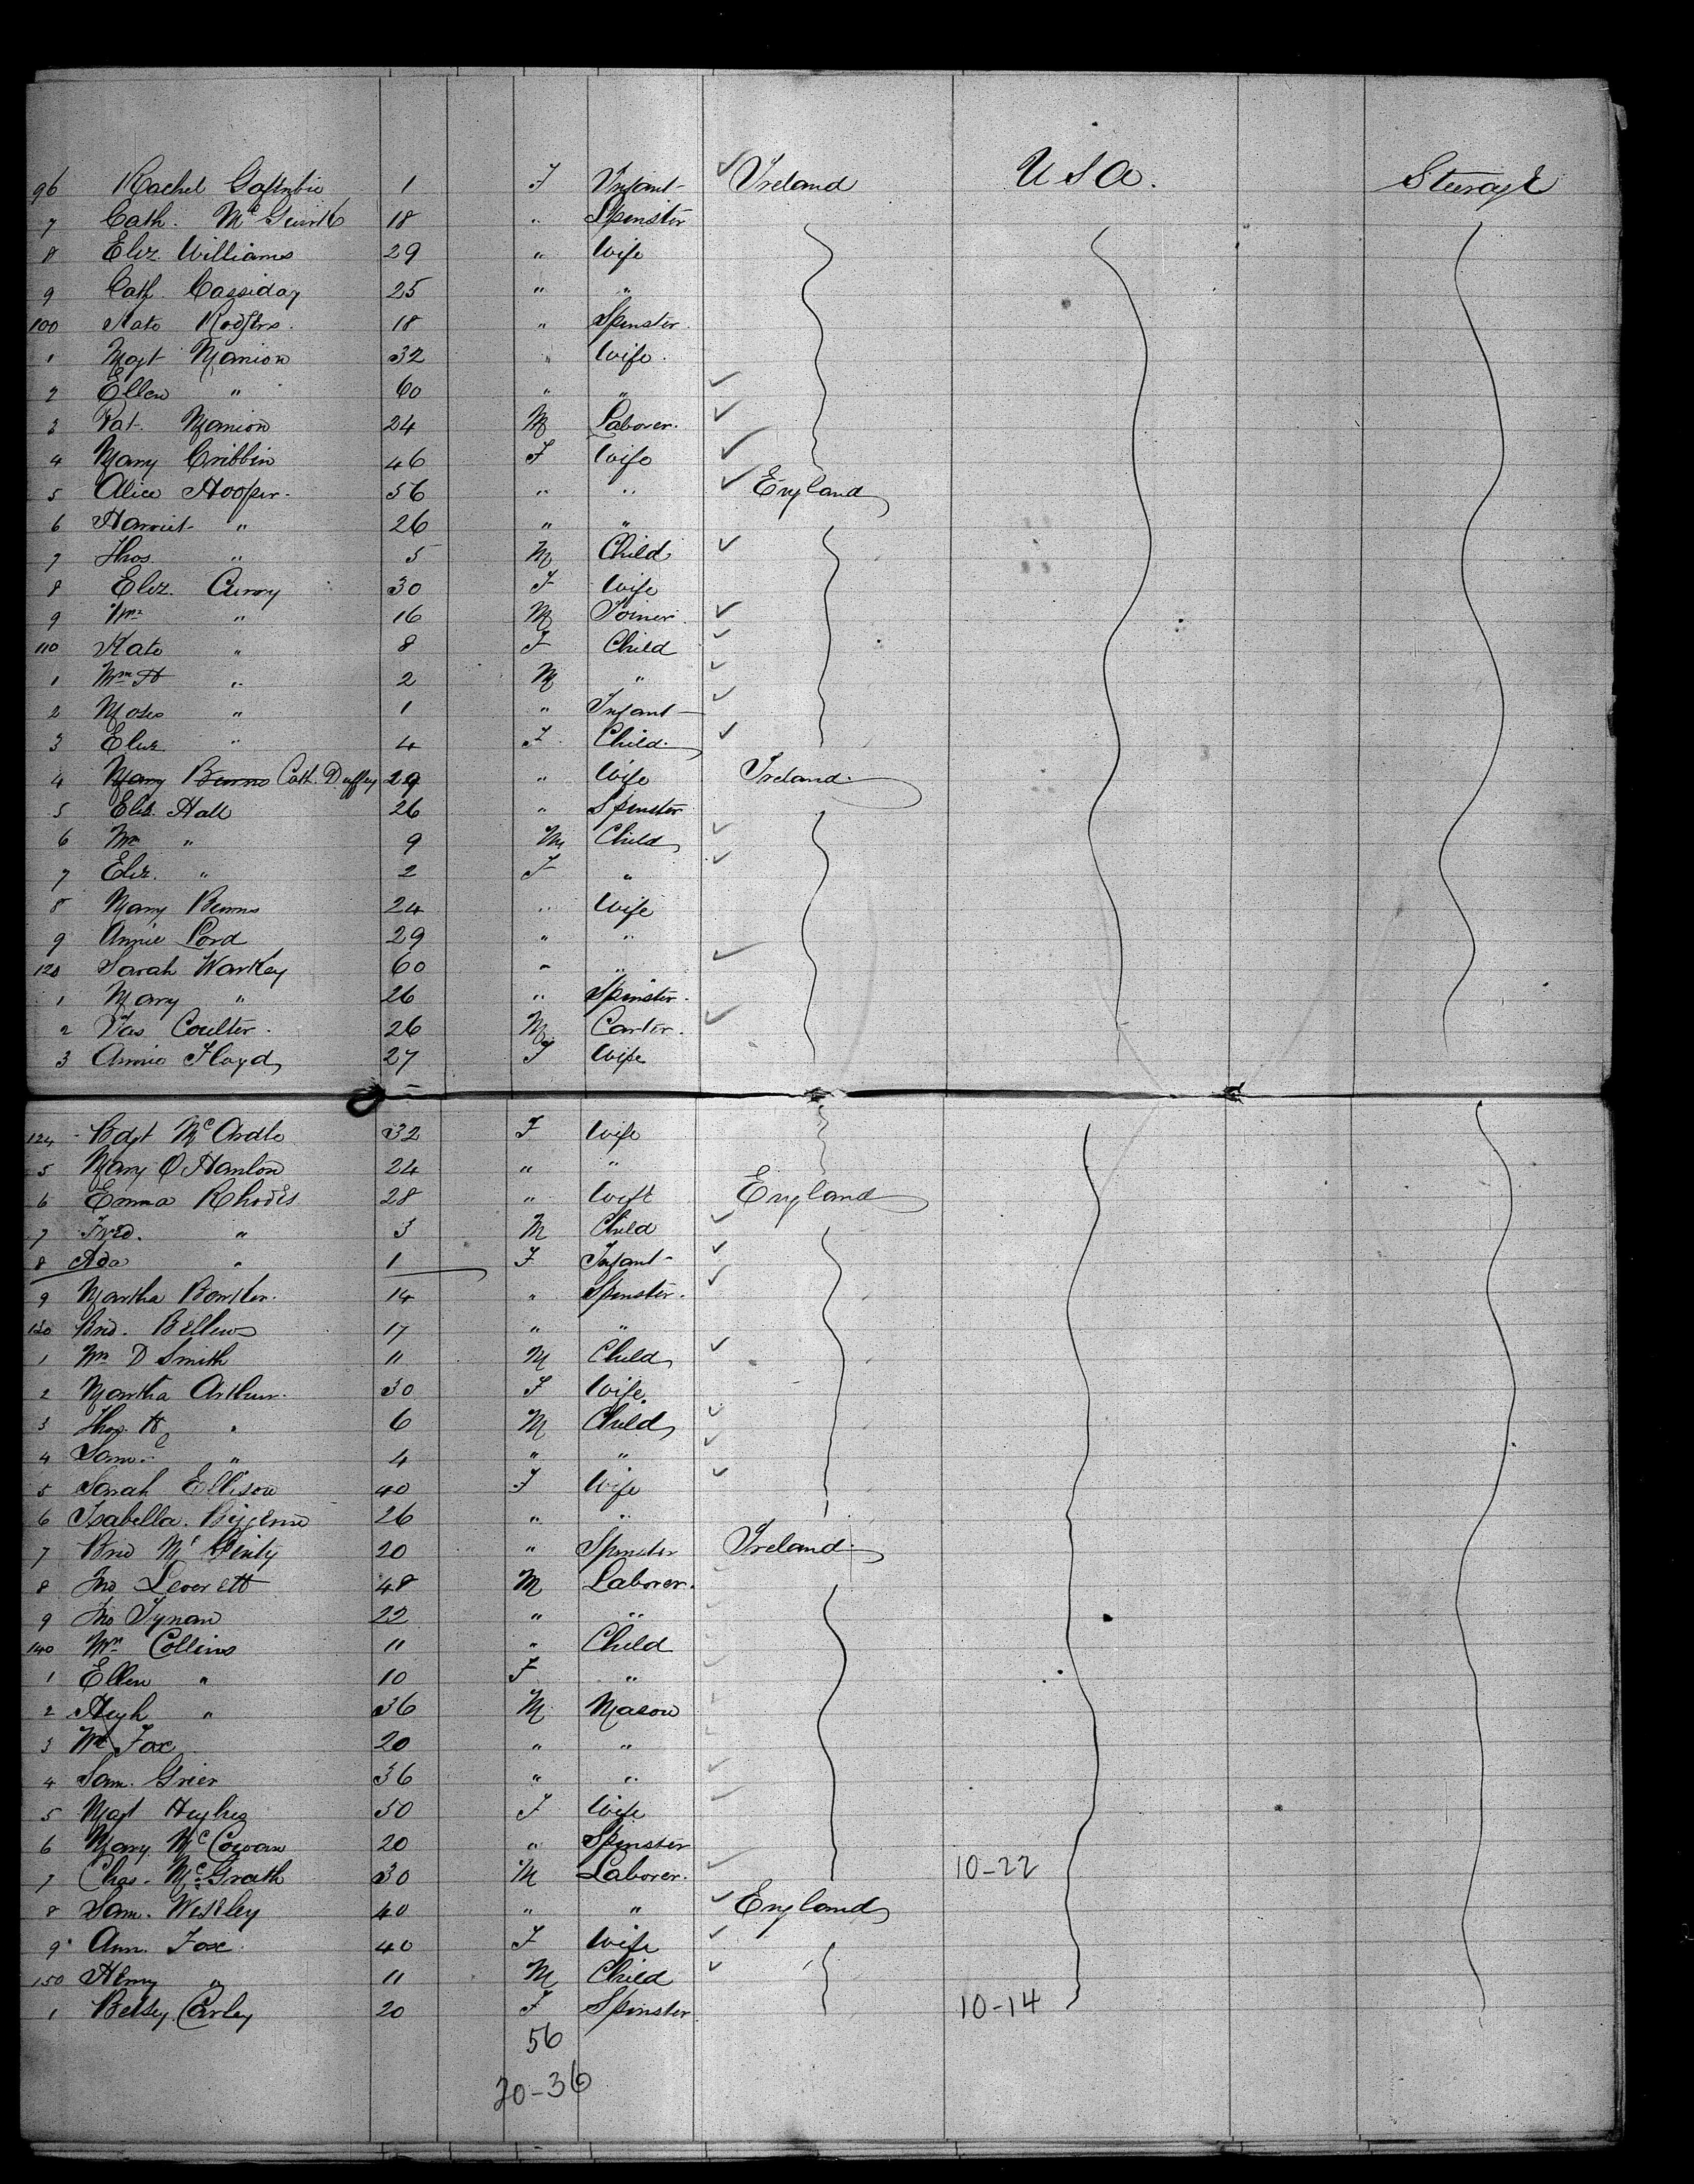 96 Rachel 1 F Infant Ireland USA. Steerage
7 Cath. 18 " Spinster
8 Eliz. Williams 29 " Wife
9 Cath. Cassiday 25 " "
100 Kate Rodgers. 18 " Spinster.
1 Magt Manion 32 " Wife.
2 Ellen " 60 " "
3 Pat. Manion 24 M Laborer.
4 Mary Cribbin 46 F Wife
5 Alice Hooper. 56 " " England
6 Harriet " 26 " "
7 Thos. " 5 M Child
8 Eliz. Curry 30 F Wife
9 Wm " 16 M Joiner
110 Kate " 8 F Child
1 Wm H " 2 M "
2 Moses " 1 " Infant
3 Eliz. " 4 F Child.
4 Mary Burns Cath. Duffey 29 " Wife Ireland.
5 Eliz. Hall 26 " Spinster
6 Wm " 9 M Child
7 Eliz. " 2 F "
8 Mary Burns 24 " Wife
9 Annie Lord 29 " "
120 Sarah Warkey 60 " "
1 Mary " 26 " Spinster.
2 Jas Coulter. 26 M Carter.
3 Annie Floyd 27 F Wife
124 Bdgt McArdle 32 F Wife
5 Mary O'Hanlon 24 " "
6 Emma Rhodes 28 " Wife England
7 Fred. " 3 M Child
8 Ada " 1 F Infant
9 Martha 14 " Spinster.
130 Brid. Bellew 17 " "
1 Wm D Smith 11 M Child
2 Martha Arthur. 30 F Wife
3 Thos. H " 6 M Child
4 Saml " 4 " "
5 Sarah Ellison 40 F Wife
6 Isabella. 26 " "
7 Brid McGinty 20 " Spinster Ireland.
8 Jno Leverett 48 M Laborer.
9 Jno Tynan 22 " "
140 Wm Collins 11 " Child
1 Ellen " 10 F "
2 Hugh " 36 M Mason
3 Wm Fox 20 " "
4 Sam. Grier 36 " "
5 Magt Hughes 50 F Wife
6 Mary McCowan 20 " Spinster
7 Chas. McGrath 30 M Laborer. 10-22
8 Sam. Weskley 40 " " England
9 Ann. Fox. 40 F Wife
150 Henry " 11 M Child
1 Betsey Corley 20 F Spinster 10-14
56
20-36